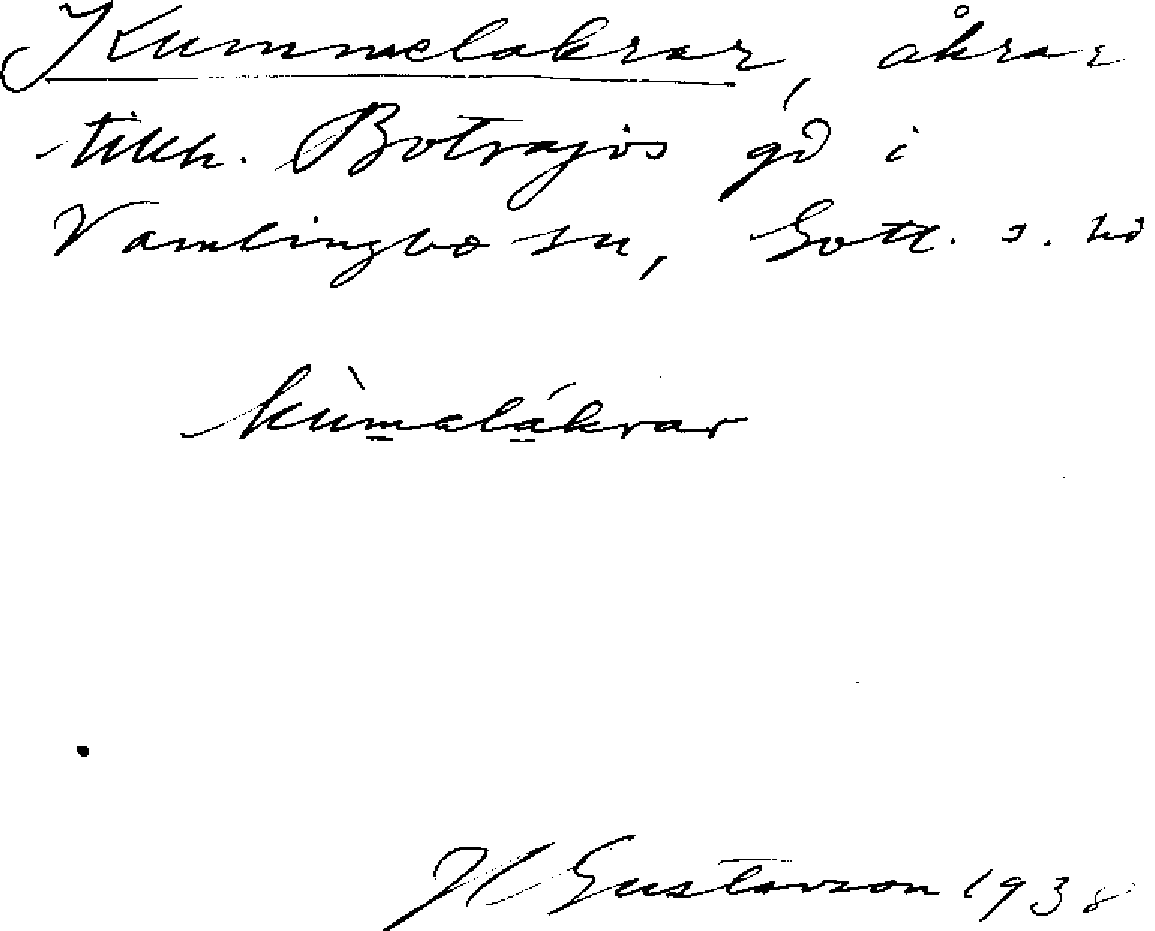 Kummelakrar, åkrar
tillh. Botvajvs gd i
Vamlingbo sn, Gotl. s. hd
kùmalákrar
H Gustavson 1938